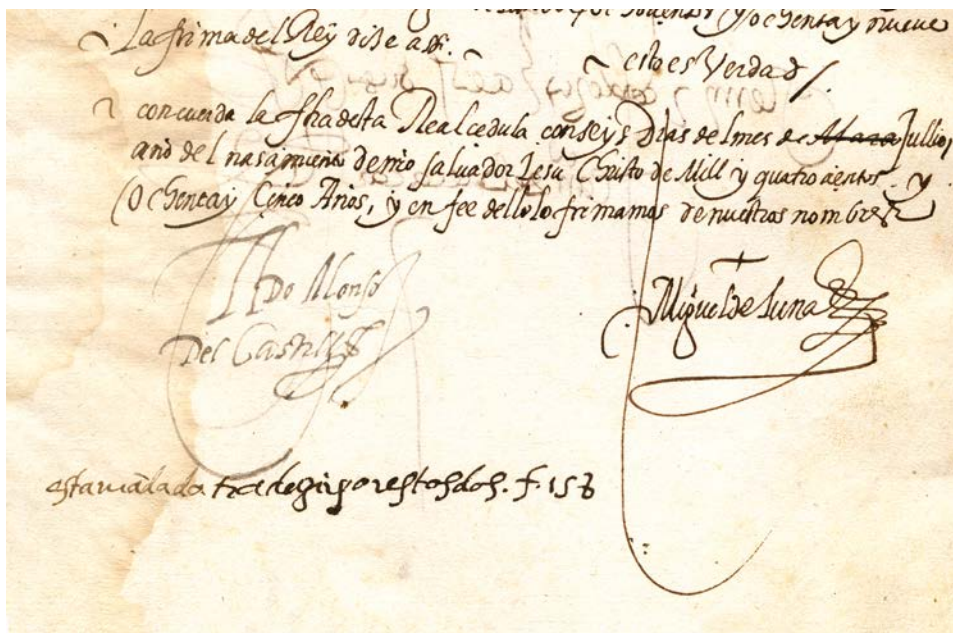 y ochenta y nueve
La firma del Rey dise assi.
esto es Verdad /
concuerda la fha desta Real cedula con seys Dias del mes de Marzo Jullio,
año del nasçimiento de nro saluador Iesu Christo de Mill y quatroçientos y
Ochenta y Cinco Años, y en fee dello lo firmamos de nuestros nombres
Do Alonso
Del Castillo
Miguel de Luna
esta mãdada traduzir por estos dos. f. 158